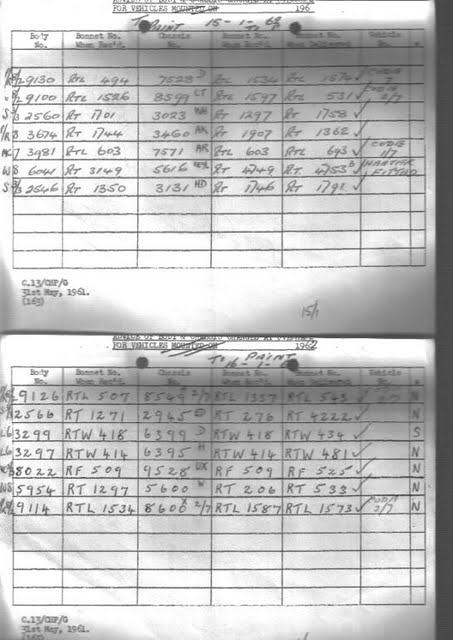 FOR VEHICLES MOUNTED ON 196
TO PAINT 15-1-62
Body No. Bonnet No. When Rec'd. Chassis No. Bonnet No. Bonnet No. When Delivered Vehicle No.
9130 RTL 494 7528 D RTL 1534 RTL 1574 ✓
9100 RTL 1526 8599 CT RTL 1597 RTL 531 ✓ 2/7
S 3 2560 RT 1701 3023 RT 1297 RT 1758 ✓
3674 RT 1744 3460 AK RT 1907 RT 1362 ✓
7 3981 RTL 603 7571 AR RTL 603 RTL 693 ✓ 1/7
WS 6041 RT 3149 5616 RT 4749 RT 4753 ✓ HEATER FITTED
S 3 2646 RT 1350 3131 HD RT 1746 RT 1792 ✓
C.13/CHP/G
31st May, 1961.
(163)
15/1
FOR VEHICLES MOUNTED ON 1962
TO PAINT
16-1-
Body No. Bonnet No. When Rec'd. Chassis No. Bonnet No. Bonnet No. When Delivered Vehicle No.
9126 RTL 507 8549 2/7 RTL 1337 RTL 543 ✓ 2/7 N
2566 RT 1271 2945 RT 276 RT 4222 ✓ N
L6 3299 RTW 418 6399 D RTW 418 RTW 434 ✓ S
L6 3297 RTW 414 6395 H RTW 414 RTW 481 ✓ N
8022 RF 509 9528 UX RF 509 RF 525 ✓ N
WS 5954 RT 1297 5600 W RT 206 RT 533 ✓ N
9114 RTL 1534 8600 2/7 RTL 1587 RTL 1573 ✓ 2/7 N
C.13/CHP/G
31st May, 1961.